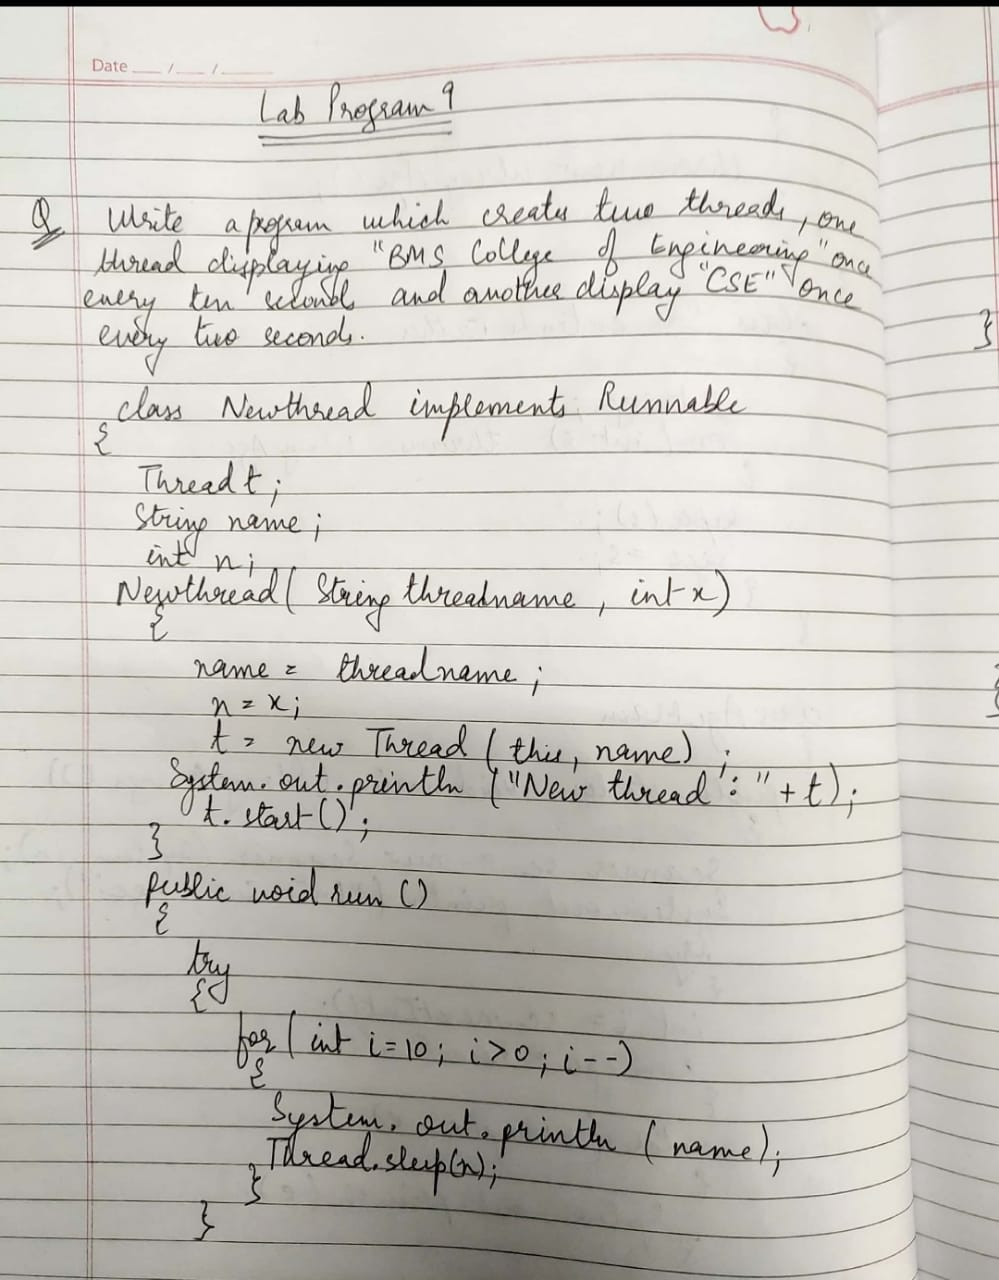 Date __/__/____
Lab Program 9
Q Write a program which creates two threads, one
thread displaying "BMS College of Engineering" once
every ten seconds and another display "CSE" once
every two seconds.
class Newthread implements Runnable
{
Thread t;
String name;
int n;
Newthread( String threadname, int x)
{
name = threadname;
n = x;
t = new Thread (this, name);
System.out.println ("New thread : " + t);
t. start();
}
public void run ()
{
try
{
for( int i=10; i>0; i--)
{
System. out. println (name);
Thread.sleep(n);
}
}
}
{